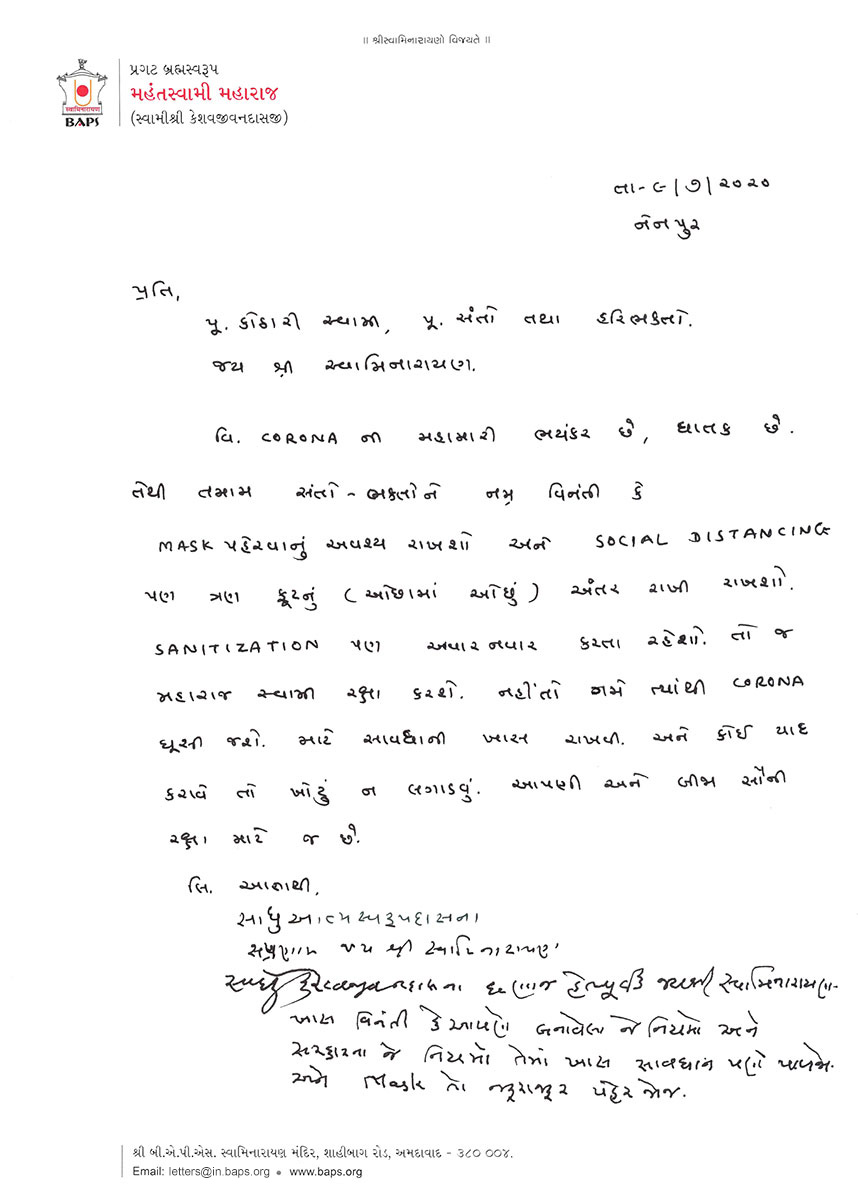 ॥ શ્રીસ્વામિનારાયણો વિજયતે ॥
પ્રગટ બ્રહ્મસ્વરૂપ
મહંતસ્વામી મહારાજ
(સ્વામીશ્રી કેશવજીવનદાસજી)
સ્વામિનારાયણ
BAPS
તા-૯/૭/૨૦૨૦
નેનપુર
પ્રતિ,
પૂ. કોઠારી સ્વામી, પૂ. સંતો તથા હરિભક્તો.
જય શ્રી સ્વામિનારાયણ.
વિ. CORONA ની મહામારી ભયંકર છે, ઘાતક છે.
તેથી તમામ સંતો-ભક્તોને નમ્ર વિનંતી કે
MASK પહેરવાનું અવશ્ય રાખશો અને SOCIAL DISTANCING
પણ ત્રણ ફૂટનું (ઓછામાં ઓછું) અંતર રાખી રાખશો.
SANITIZATION પણ અવારનવાર કરતા રહેશો. તો જ
મહારાજ સ્વામી રક્ષા કરશે. નહીંતો ગમે ત્યાંથી CORONA
ઘૂસી જશે. માટે સાવધાની ખાસ રાખવી. અને કોઈ યાદ
કરાવે તો ખોટું ન લગાડવું. આપણી અને બીજા સૌની
રક્ષા માટે જ છે.
લિ. આજ્ઞાથી,
સાધુ આત્મસ્વરૂપદાસના
સપ્રણામ જય શ્રી સ્વામિનારાયણ
સાધુ કેશવજીવનદાસના ઘણાજ હેતપૂર્વક જયશ્રી સ્વામિનારાયણ-
ખાસ વિનંતી કે આપણે બનાવેલ જે નિયમો અને
સરકારના જે નિયમો તેમાં ખાસ સાવધાન પણે
અને Mask તો જરૂરાજરૂર પહેરજોજ.
શ્રી બી.એ.પી.એસ. સ્વામિનારાયણ મંદિર, શાહીબાગ રોડ, અમદાવાદ - ૩૮૦ ૦૦૪.
Email: letters@in.baps.org • www.baps.org